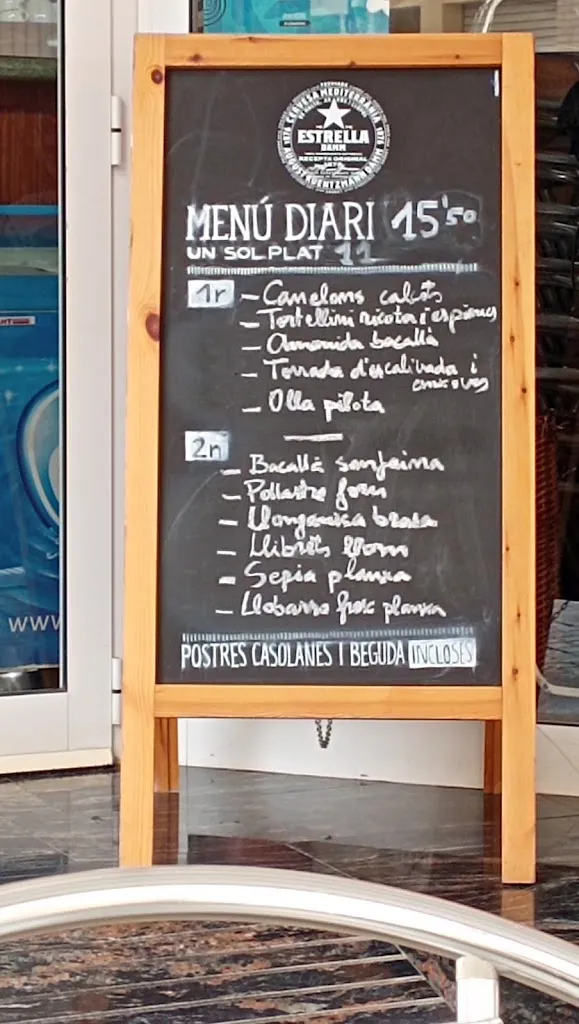 CERVESA MEDITERRÀNIA
ESTRELLA
DAMM
RECEPTA ORIGINAL
1876
AUGUST KUENTZMANN DAMM
MENÚ DIARI 15'50
UN SOL PLAT 11
1r - Canelons calçots
- Tortellini ricota i espinacs
- Amanida bacallà
- Torrada d'escalivada i
anxoves
- Olla pilota
2n
- Bacallà samfaina
- Pollastre forn
- Llonganissa brasa
- Llibrets llom
- Sepia planxa
- Llobarro fresc planxa
POSTRES CASOLANES I BEGUDA INCLOSES
www